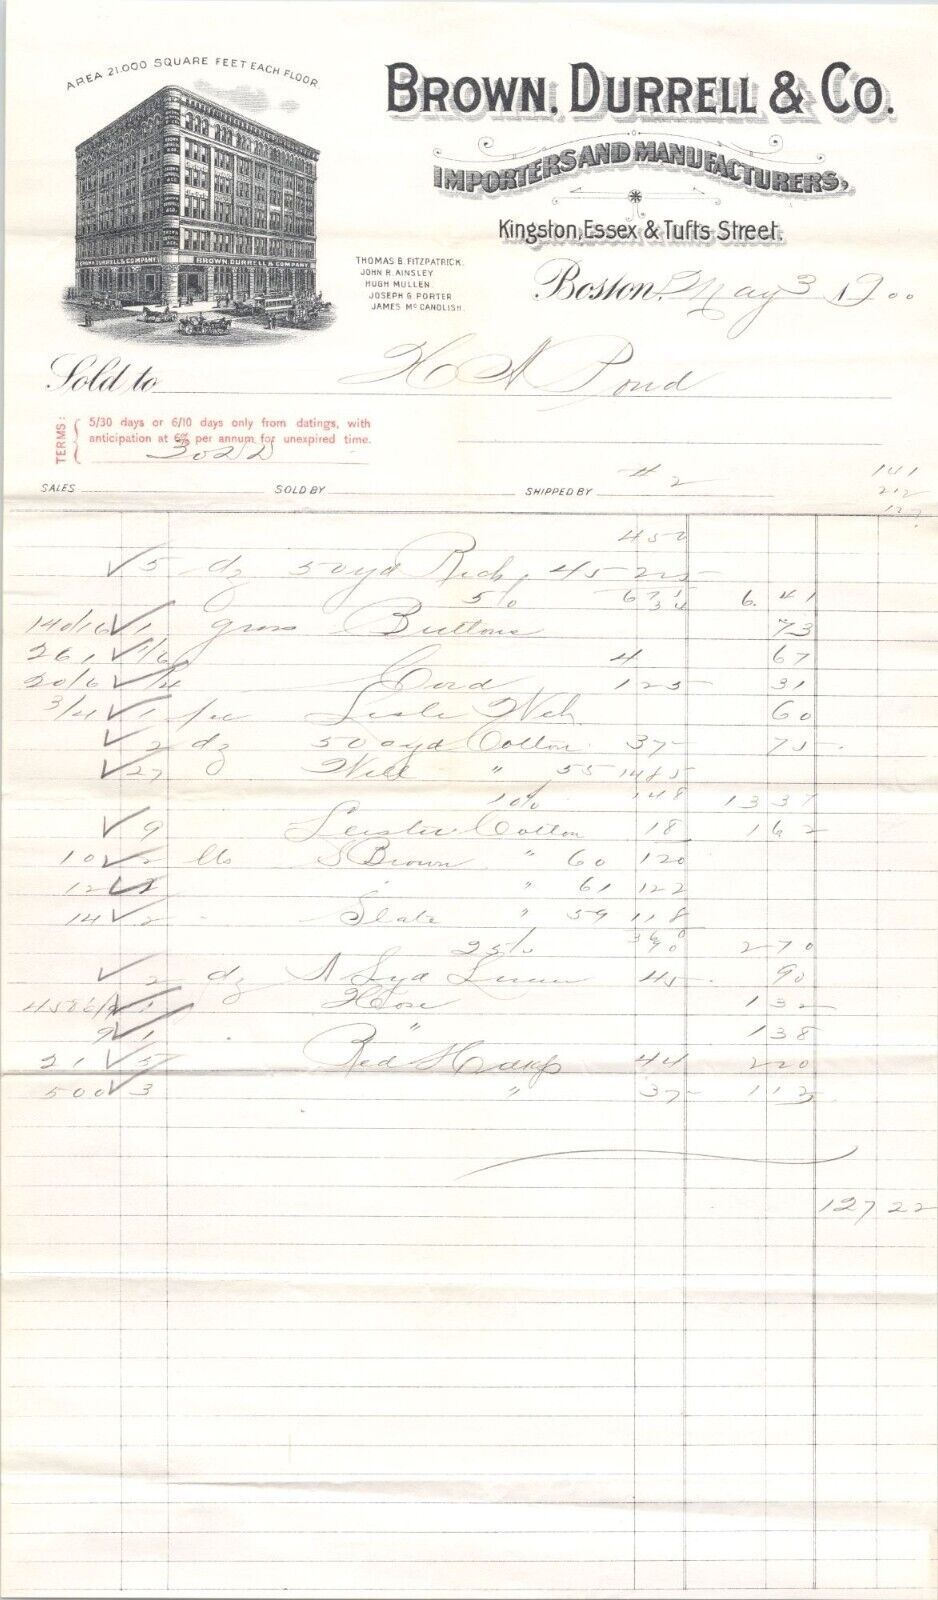 AREA 21.000 SQUARE FEET EACH FLOOR
BROWN, DURRELL & CO.
IMPORTERS AND MANUFACTURERS,
Kingston, Essex & Tufts Street.
BROWN, DURRELL & COMPANY
BROWN, DURRELL & COMPANY
THOMAS B. FITZPATRICK.
JOHN R. AINSLEY
HUGH MULLEN
JOSEPH G. PORTER
JAMES Mc CANDLISH.
Boston, May 3 1900
Sold to H N Pond
TERMS: 5/30 days or 6/10 days only from datings, with
anticipation at 6% per annum for unexpired time.
SALES SOLD BY SHIPPED BY # 2
141
212
450
✓ 5 dz 50 yd 45 225
5% 675 34 6.41
140/16 ✓ 1 gross Buttons 73
261 ✓ 1/6 4 67
20/6 ✓ 1/4 Cord 125 31
3/4 ✓ 1 pc Lisle Web 60
✓ 2 dz 500 yd Cotton 37 75
✓ 27 " 55 1485
10% 148 13 37
✓ 9 Cotton 18 162
10 ✓ 2 lb S Brown " 60 120
12 ✓ 2 " 61 122
14 ✓ 2 Slate " 59 118
25% 360 90 270
✓ 2 dz 45 90
✓ 1 Hose 132
9 ✓ 1 " 138
21 ✓ 5 Red Hdkfs 44 220
500 ✓ 3 " 37 113
127 22